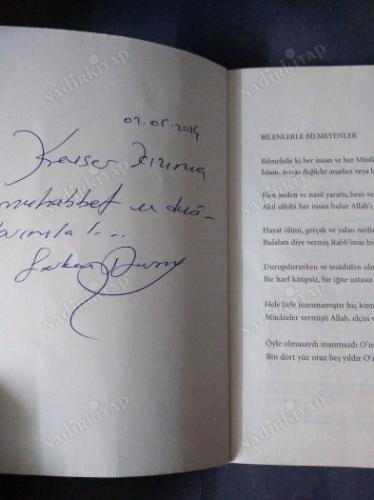 02.05.2014
muhabbet ve dua-
larımla !...
BİLENLERLE BİLMEYENLER
Bilmelidir ki her insan ve her Müsl
İslam, miras değildir anadan veya b
Kim neden ve nasıl yarattı, beni ve
Akıl sâhibi her insan bulur Allah'ı
Hayat ölüm, gerçek ve yalan nedir
Bulalım diye vermiş Rabb'imiz bi
Durupdururken ve tesâdüfen olm
Bir harf kâtipsiz, bir iğne ustasız
Hele hele inanmamıştır hiç kims
Mûcizeler vermişti Allah, elçisi v
Öyle olmasaydı inanmazdı O'n
Bin dört yüz otuz beş yıldır O'
nadirkitap